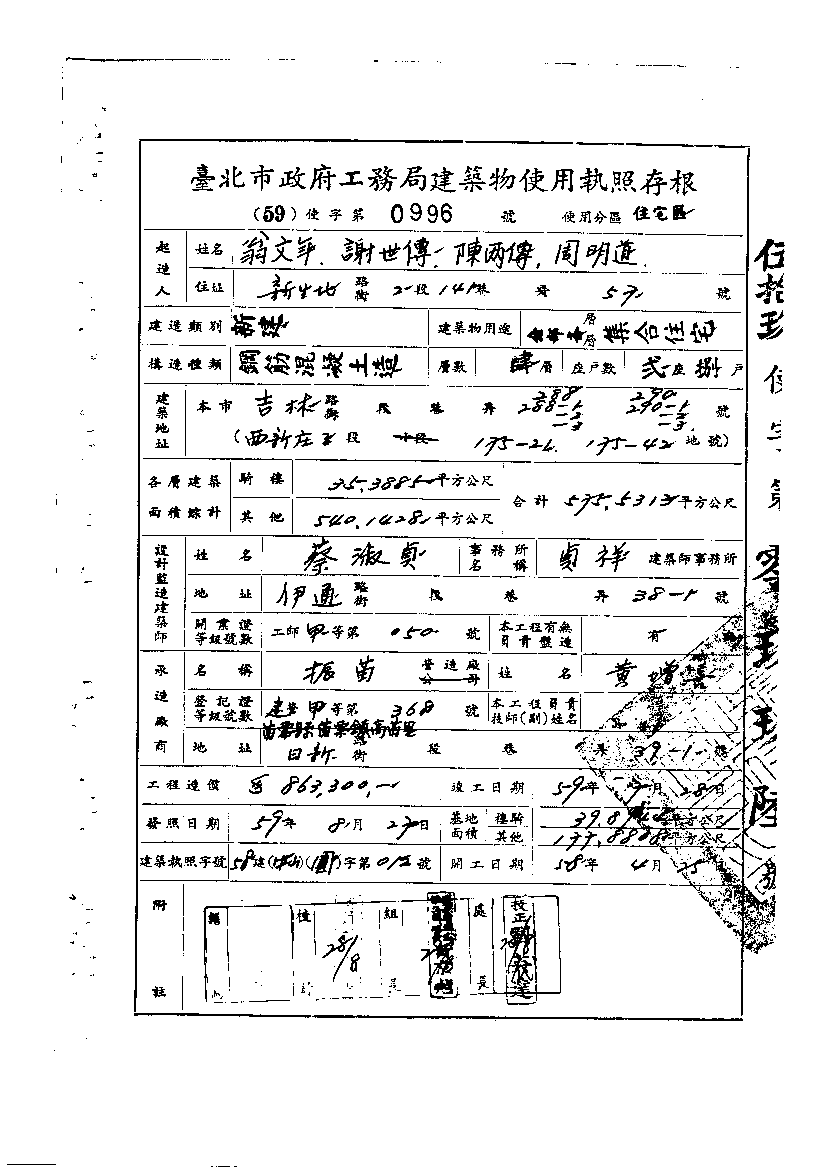 臺北市政府工務局建築物使用執照存根
(59)使字第 0996 號 使用分區 住宅區
起造人 姓名 翁文年、謝世傳、陳兩傳、周明道
住址 新生北 路街 2段 141巷 弄 57 號
建造類別 新建 建築物用途 層層 集合住宅
構造種類 鋼筋混凝土造 層數 肆層 座戶數 弍座 捌戶
建築地址 本市 吉林 路街 段 巷 弄 288 288-1 -2 -3 290 290-1 -2 -3 號
(西新庄子段 小段 175-26 175-42 地號)
各層建築面積總計 騎樓 35.3885 平方公尺 合計 575.5313 平方公尺
其他 540.1428 平方公尺
設計監造建築師 姓名 蔡淑貞 事務所名稱 貞祥 建築師事務所
地址 伊通 路街 段 巷 弄 38-1 號
開業證等級號數 工師甲等第 050 號 本工程有無負責監造 有
承造廠商 名稱 振苗 營造廠公司 姓名 黃增
登記證等級號數 建登甲等第 368 號 本工程負責技師(副)姓名
地址 苗栗縣苗栗鎮高苗里 日新 路街 段 巷 弄 39-1 號
工程造價 863,300 竣工日期 59年 7月 28日
發照日期 59年 8月 27日 基地面積 樓騎 39.8 平方公尺
其他 177.88 平方公尺
建築執照字號 58建( )( )字第 號 開工日期 58年 4月 15日
附註
組 處長
28/8
校正
伍拾玖使字第零玖玖陸號